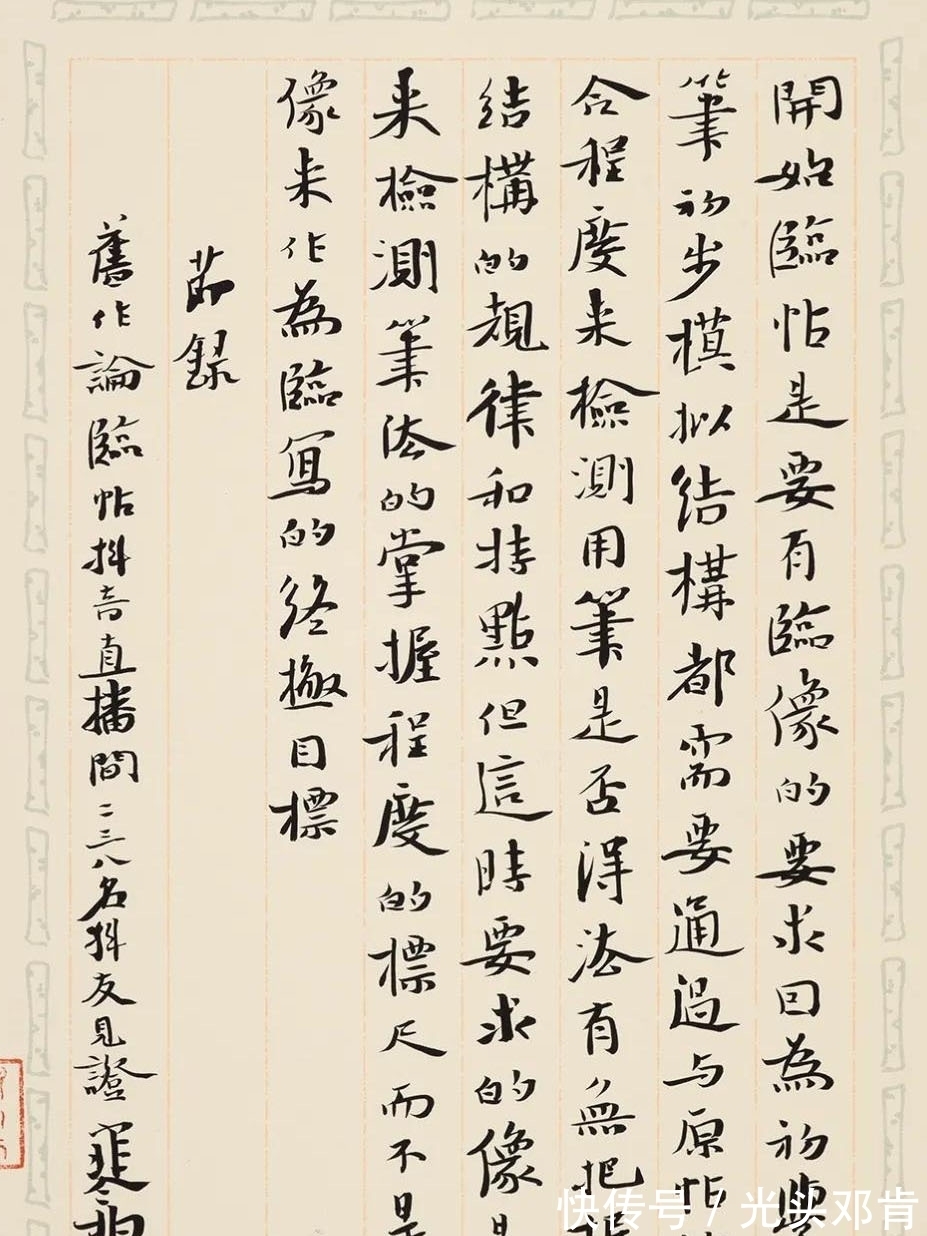 開始臨帖是要有臨像的要求因為初學
筆初步模拟結構都需要通過与原帖
合程度来檢測用筆是否得法有無把握
結構的規律和特點但這時要求的像是
来檢測筆法的掌握程度的標尺而不是
像来作為臨寫的终極目標
節録
舊作論臨帖抖音直播間二三八名抖友見證寒
快传号 / 光头邓肯